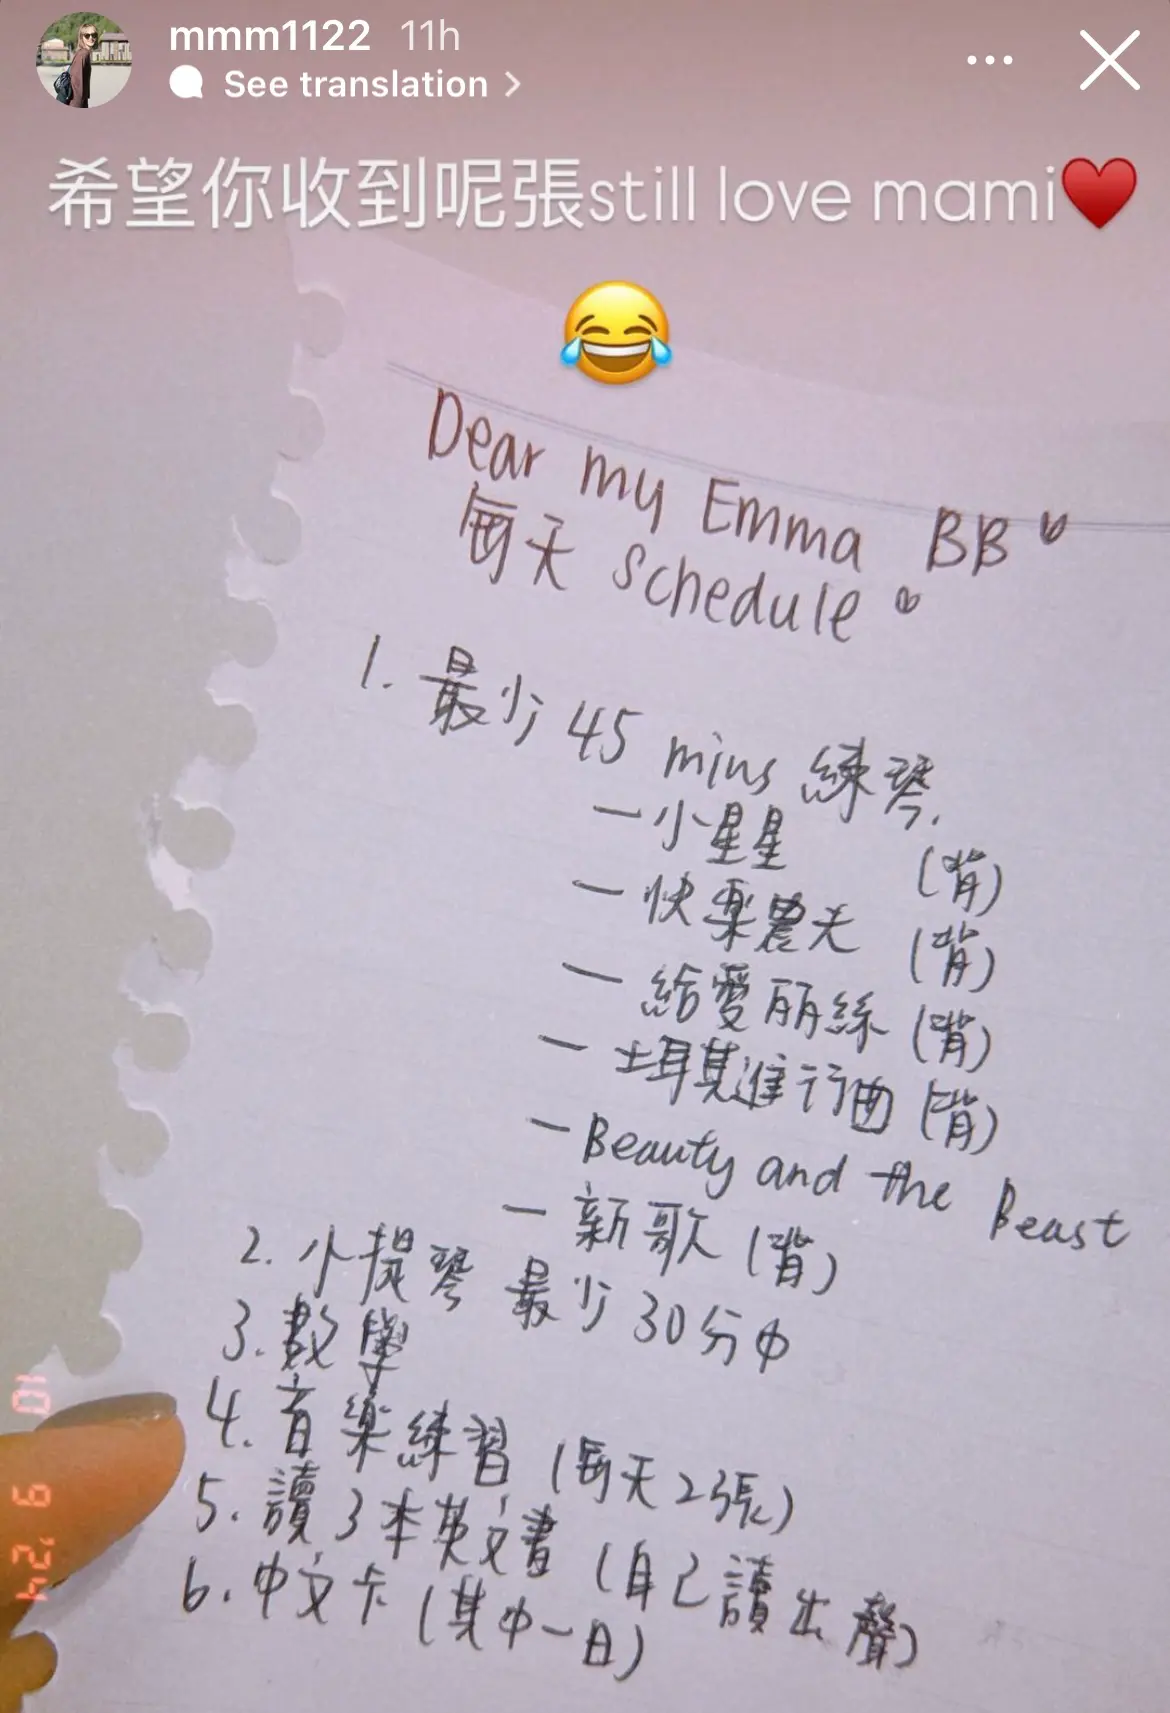 mmm1122 11h
See translation >
希望你收到呢張still love mami♥️
😂
Dear my Emma BB♡
每天 schedule♡
1. 最少 45 mins 練琴.
— 小星星 (背)
— 快樂農夫 (背)
— 給愛丽絲 (背)
— 土耳其進行曲 (背)
— Beauty and the Beast
— 新歌 (背)
2. 小提琴 最少 30分中
3. 數學
4. 音樂練習 (每天2張)
5. 讀3本英文書 (自己讀出聲)
6. 中文卡 (其中一日)
10 9 '24